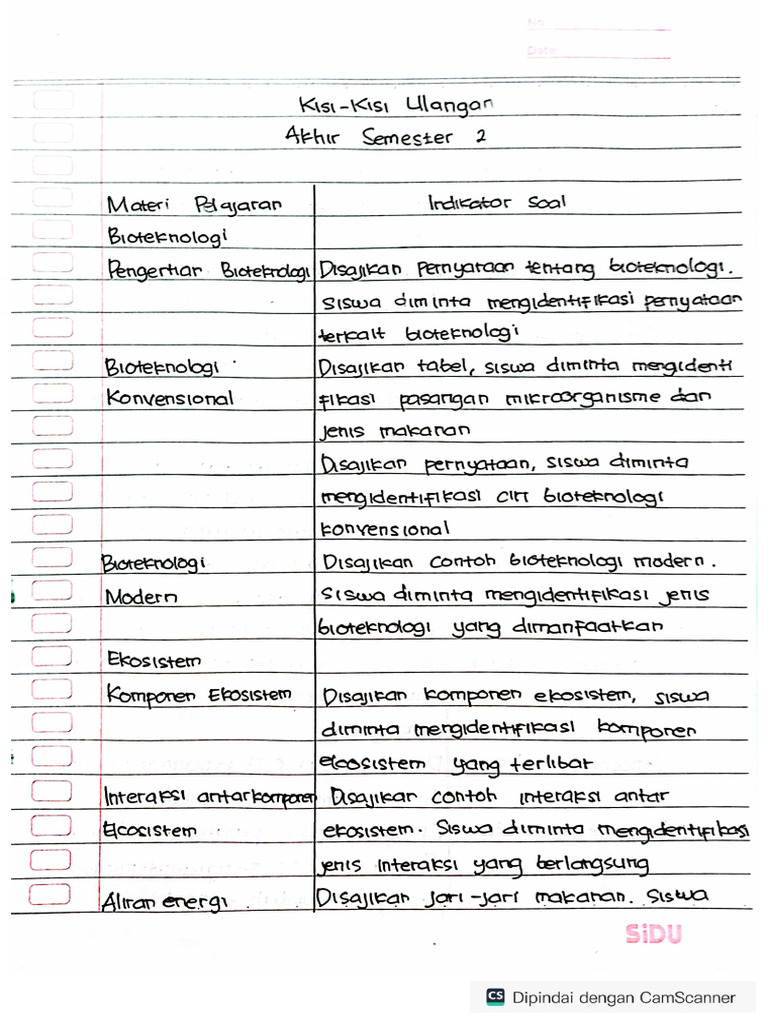 No
Date
Kisi-Kisi Ulangan
Akhir Semester 2
Materi Pelajaran Indikator Soal
Bioteknologi
Pengertian Bioteknologi Disajikan Pernyataan tentang bioteknologi.
siswa diminta mengidentifikasi pernyataan
terkait bioteknologi
Bioteknologi Disajikan tabel, siswa diminta mengidenti
Konvensional fikasi pasangan mikroorganisme dan
jenis makanan
Disajikan pernyataan, siswa diminta
mengidentifikasi ciri bioteknologi
konvensional
Bioteknologi Disajikan contoh bioteknologi modern.
Modern Siswa diminta mengidentifikasi jenis
bioteknologi yang dimanfaatkan
Ekosistem
Komponen Ekosistem Disajikan komponen ekosistem, siswa
diminta mengidentifikasi komponen
ekosistem yang terlibat
Interaksi antarkomponen Disajikan contoh interaksi antar
Ekosistem ekosistem. Siswa diminta mengidentifikasi
jenis interaksi yang berlangsung
Aliran energi Disajikan jari-jari makanan. Siswa
SiDU
CS Dipindai dengan CamScanner